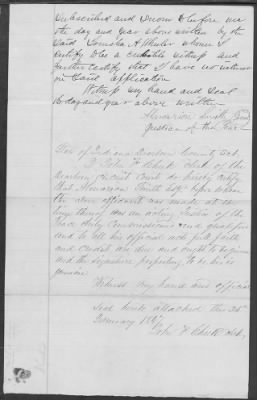 Subscribed and Sworn to before me
the day and year above written by the
said A Wheeler whom I
certify to be a credible witness and
further certify that I have no interest
in said application
Witness my hand and seal
the day and year above written
Smith Seal
Justice of the Peace
State of Indiana County Sct
I John F clerk of the
circuit Court do hereby certify
that Smith Esqr before whom
the above affidavit was made at
time thereof was an acting Justice of the
Peace duly Commissioned and qualified
and to all his official acts full faith
and credit are due and ought to be given
and the signature purporting to be his is
genuine
Witness my hand and official
Seal hereto attached this 25
February 18
John F Clerk